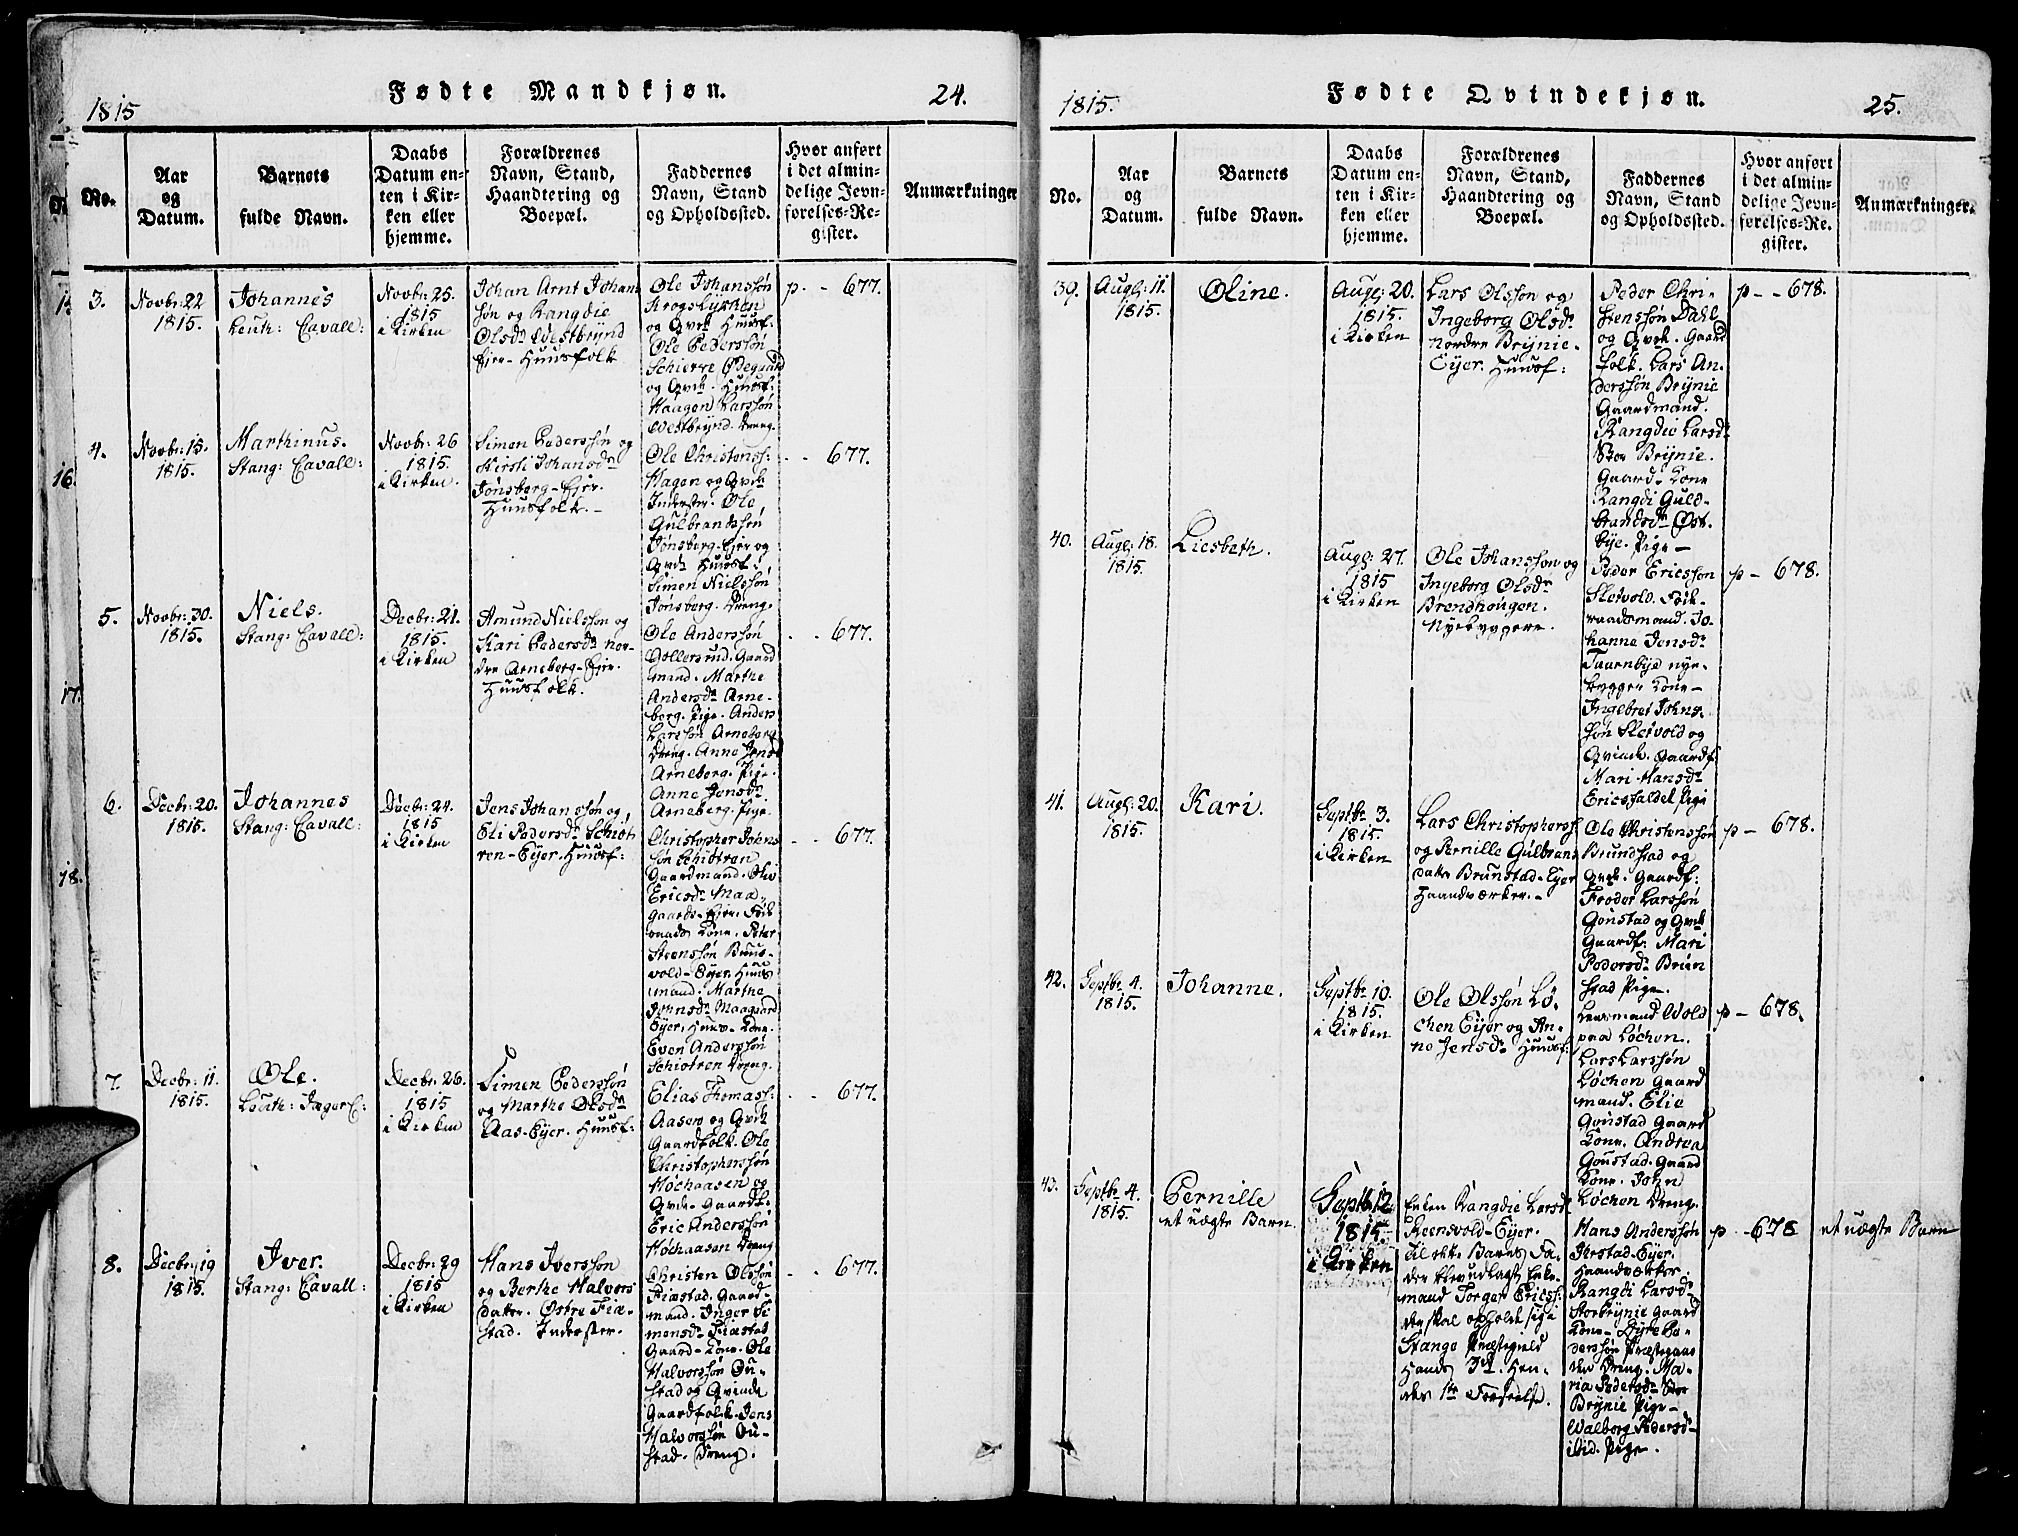 1815
Fødte Mandkjøn.
24.
No.
Aar
og
Datum.
Barnets
fulde Navn.
Daabs
Datum en-
ten i Kir-
ken eller
hjemme.
Forældrenes
Navn, Stand,
Haandtering og
Boepæl.
Faddernes
Navn, Stand
og Opholdssted.
Hvor anført
i det almin-
delige Jevn-
førelses-Re-
gister.
Anmærkninger
3.
Novbr: 22
1815.
Johannes
Leuth: Cavall:
Novbr: 25.
1815
i Kirken
Johan Arnt Johan
søn og Rangdie
Olsdr Westbrynd
Ejer- Huusfolk
Ole Johanssøn
og Qvde Huusf:
Ole Pederssøn
Schierre Ødegaard
og Qvde. Huusf:
Haagen Larssøn
Westbrynd. Dreng.
p. - 677.
4.
Novbr: 15.
1815.
Marthinus.
Stang: Cavall:
Novbr: 26
1815.
i Kirken.
Simen Pederssøn og
Kirsti Johansdr
Jønsberg-Ejer.
Huusfolk.-
Ole Christenss:
Hagen og Qvde
Inderster. Ole
Gulbrandssøn
Jønsberg-Ejer og
Qvde Huusf:
Simen Nielssøn
Jønsberg. Dreng.
- - 677.
5.
Novbr: 30.
1815.
Niels.
Stang: Cavall:
Decbr: 21.
1815.
i Kirken
Amund Nielssøn og
Kari Pedersdr nor-
dre Arneberg-Ejer.
Huusfolk.
Ole Anderssøn
Gollersrud. Gaard
mand. Marthe
Andersdr Arne-
berg. Pige. Anders
Larssøn Arneberg
Dreng. Anne Jensd
Arneberg. Pige.
Anne Jensdr
Arneberg. Pige.
- - 677.
6.
Decbr: 20.
1815.
Johannes
Stang: Cavall:
Decbr: 24.
1815
i Kirken
Jens Johanssøn og
Eli Pedersdr Schiøt
ren-Ejer. Huusf:
Christopher Johns
søn Schiøtren
Gaardmand. Oliv
Ericsdr Maa-
gaards-Ejer. Foik
raads Kone. Peter
Steenssøn Bruus-
vold-Eyer. Huus
mand. Marthe
Johnsdr Maagaard
Eyer. Huus-Kone.
Even Anderssøn
Schiøtren Dreng.
- - 677.
7.
Decbr: 11.
1815.
Ole.
Leuth: Jæger C:
Decbr: 26.
1815
i Kirken
Simen Pederssøn
og Marthe Olsdr
Aas-Eyer. Huusf:
Elias Thomass:
Aasen og Qvde
Gaardfolk. Ole
Christopherssøn
Høchaasen og
Qvde. Gaardf.
Eric Anderssøn
Høchaasen Dreng
- - 677.
8.
Decbr: 19
1815.
Iver.
Stang: Cavall:
Decbr: 29
1815
i Kirken
Hans Iverssøn
og Berthe Halvors
datter. Østre Fiæ-
stad. Inderster.
Christen Olssøn
Fiæstad. Gaard-
mand. Inger Si
monsdr Fiæstad
Gaard-Kone. Ole
Halvorssøn Ou-
stad og Qvinde
Gaardfolk. Jens
Halvorssøn Ou-
stad. Dreng.
- - 677.
1815.
Fødte Qvindekjøn.
25.
No.
Aar
og
Datum.
Barnets
fulde Navn.
Daabs
Datum en-
ten i Kir-
ken eller
hjemme.
Forældrenes
Navn, Stand,
Haandtering og
Boepæl.
Faddernes
Navn, Stand
og Opholdssted.
Hvor anført
i det almin-
delige Jevn-
førelses-Re-
gister.
Anmærkninger.
39.
Augl: 11.
1815.
Oline.
Augl: 20.
1815.
i Kirken
Lars Olssøn og
Ingeborg Olsdr
nordre Brynie-
Eyer. Huusf:
Peder Chri-
stenssøn Dahl
og Qvde. Gaard
folk. Lars An-
derssøn Brynie
Gaardmand.
Rangdie Larsdr
Stor Brynie.
Gaard-Kone
Rangdi Guld-
brandsdr Øst-
bye. Pige-
p - - 678.
40.
Augl: 18.
1815.
Liesbeth.
Augl: 27.
1815
i Kirken
Ole Johanssøn og
Ingeborg Olsdr
Brendhougen.
Nyebyggere.
Peder Ericssøn
Sletvold. Foik-
raadsmand. Jo
hanne Jensdr
Taarnbye nye-
bygger Kone-
Ingebret Johns-
søn Sletvold og
Qvinde. Gaardf.
Mari Hansdr
Ericsfaldet Pige
p - 678.
41.
Augl: 20.
1815.
Kari.
Septbr 3.
1815.
i Kirken
Lars Christopherss.
og Pernille Gulbran
datter Brunstad-Eyer
Haandværker.-
Ole Christenssøn
Brundstad og
Qvde. Gaardf:
Freder Larssøn
Gonstad og Qvde
Gaardf: Mari
Pedersdr Brun
stad Pige.
p - 678.
42.
Septbr 4.
1815.
Johanne.
Septbr 10.
1815.
i Kirken
Ole Olssøn Lø-
chen Eyer og An-
ne Jensdr Huusf:
Lensmand Wold
paa Løchen.
Lars Larssøn
Løchen Gaard
mand. Elie
Gonstad Gaard
Kone. Andrea
Gonstad. Gaard
Kone. John
Løchen Dreng.
p - 678.
43.
Septbr 4.
1815.
Pernille
et uægte Barn.
Septbr 12
1815.
i Kirken
Enken Rangdie Larsd
Reensvold-Eyer.
til dette Barns Fa-
der blev udlagt Enke-
mand Torger Ericss:
der skal opholde sig i
Stange Præstegield
Hands 3de. Hen-
des 1te Forseelse.
Hans Anderssøn
Jirstad-Eyer.
Haandværker.
Rangdi Larsdr
Storbrynie Gaard
Kone- Dyre Pe-
derssøn Præstegaar
den Dreng. Ma-
ria Pedersdr Stor
Brynie Pige-
Walborg Pedersd-
ibid. Pige.
p - 678
et uægte Barn